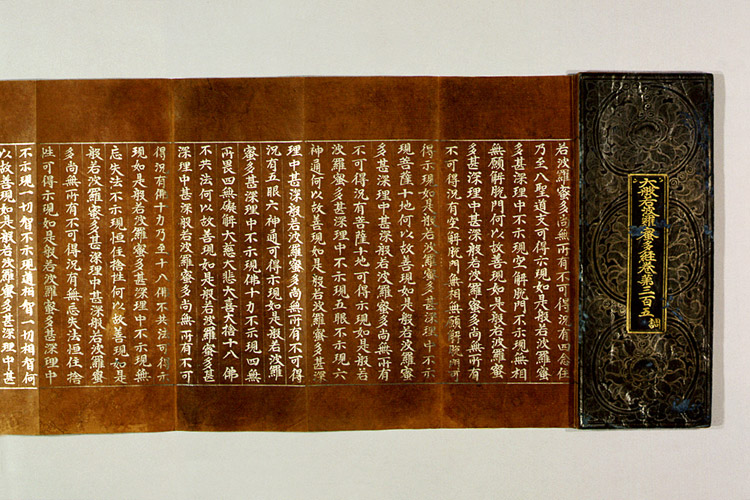 大般若波羅蜜多經卷第三百五 調
若波羅蜜多尚無所有不可得況有四念住
乃至八聖道支可得示現如是般若波羅蜜
多甚深理中不示現空解脫門不示現無相
無願解脫門何以故善現如是般若波羅蜜
多甚深理中甚深般若波羅蜜多尚無所有
不可得況有空解脫門無相無願解脫門可
得示現如是般若波羅蜜多甚深理中不示
現菩薩十地何以故善現如是般若波羅蜜
多甚深理中甚深般若波羅蜜多尚無所有
不可得況有菩薩十地可得示現如是般若
波羅蜜多甚深理中不示現五眼不示現六
神通何以故善現如是般若波羅蜜多甚深
理中甚深般若波羅蜜多尚無所有不可得
況有五眼六神通可得示現如是般若波羅
蜜多甚深理中不示現佛十力不示現四無
所畏四無礙解大慈大悲大喜大捨十八佛
不共法何以故善現如是般若波羅蜜多甚
深理中甚深般若波羅蜜多尚無所有不可
得況有佛十力乃至十八佛不共法可得示
現如是般若波羅蜜多甚深理中不示現無
忘失法不示現恒住捨性何以故善現如是
般若波羅蜜多甚深理中甚深般若波羅蜜
多尚無所有不可得況有無忘失法恒住捨
性可得示現如是般若波羅蜜多甚深理中
不示現一切智不示現道相智一切相智何
以故善現如是般若波羅蜜多甚深理中甚